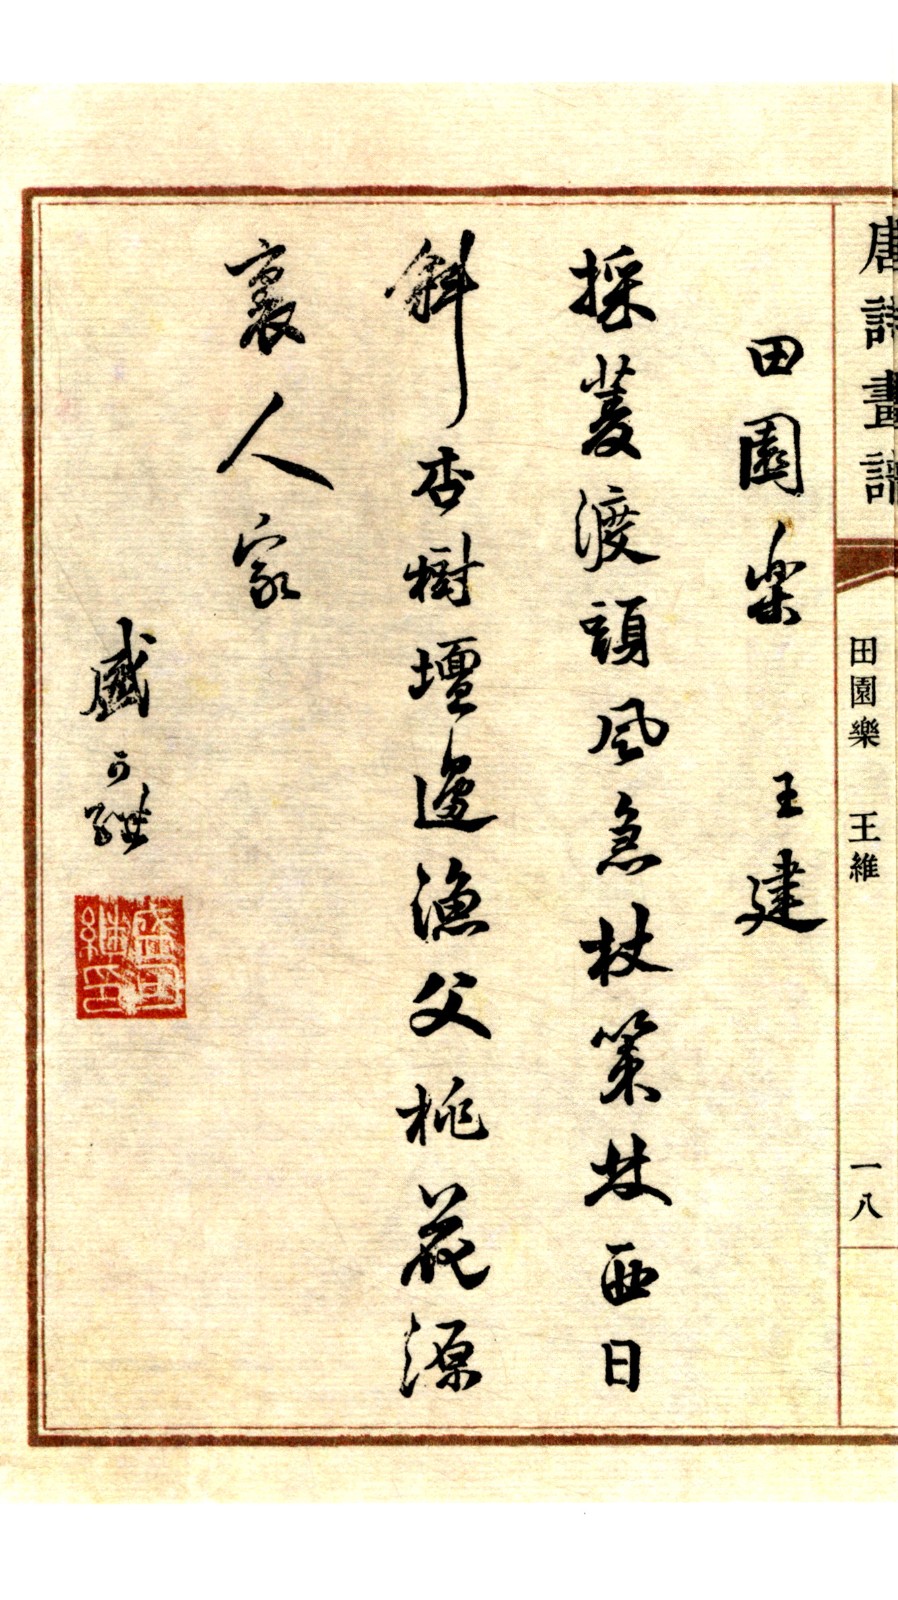 唐詩畫譜
田園樂 王維
一八
田園樂 王建
採菱渡頭風急杖策杖西日
斜杏樹壇邊漁父桃花源
裏人家
盛可繼
盛可繼印